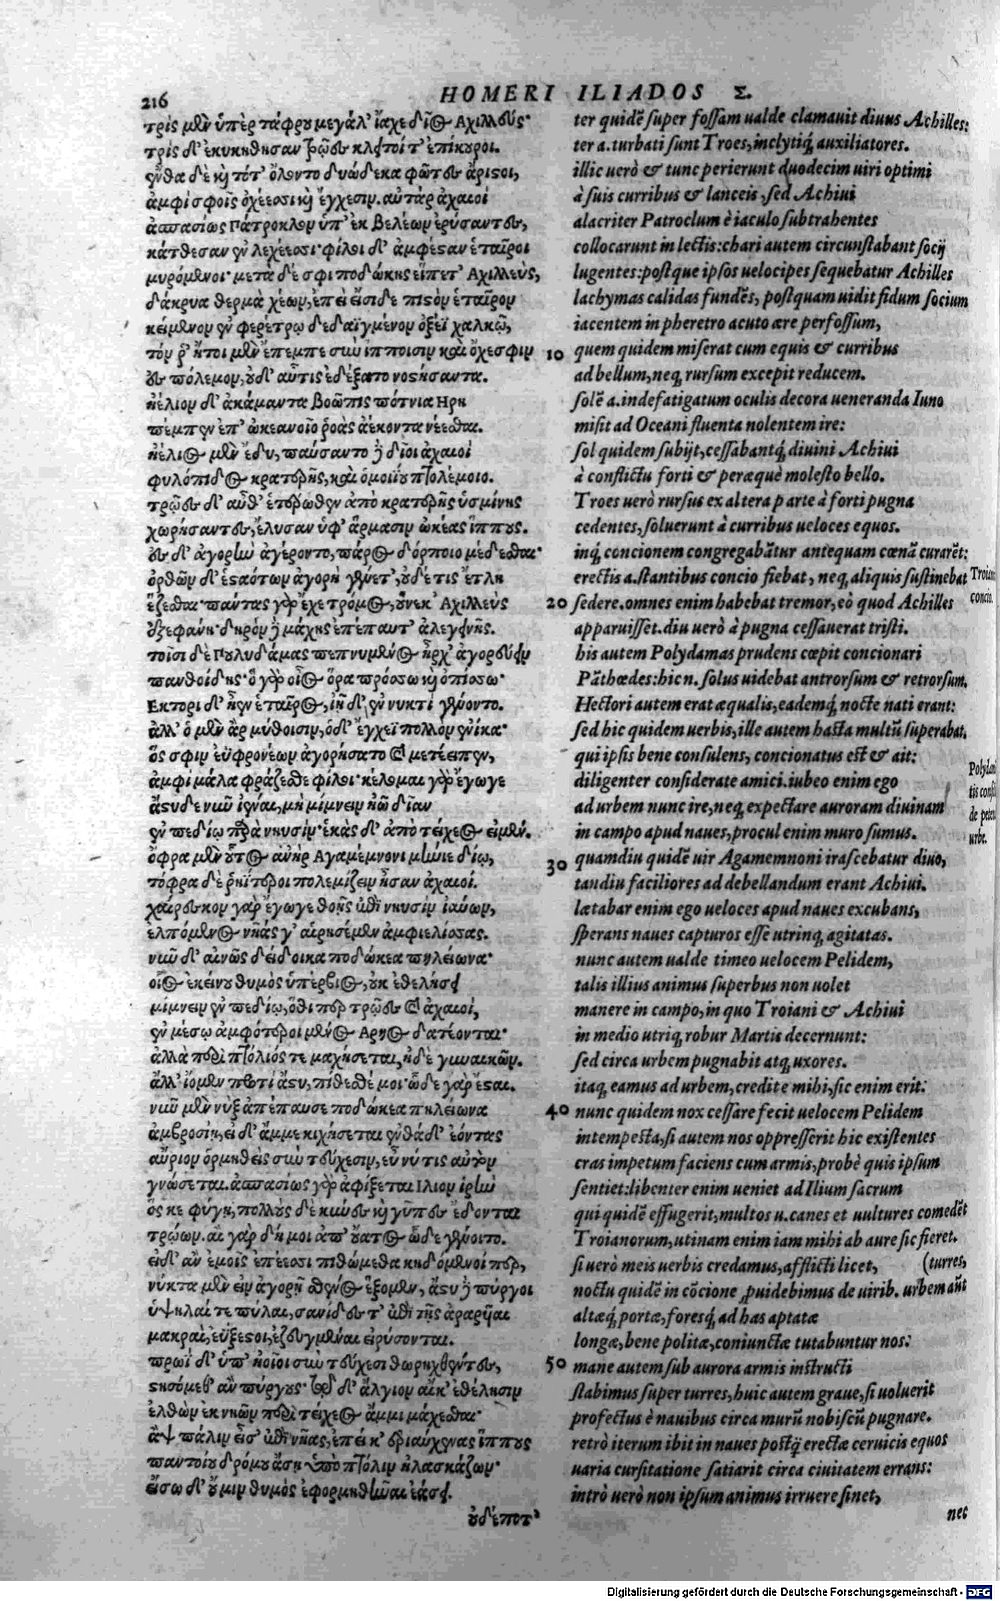 216
HOMERI ILIADOS Σ.
τρὶς μὲν ὑπὲρ τάφρου μεγάλ' ἴαχε δῖος Αχιλλεύς·
τρὶς δ' ἐκυκήθησαν τρῶες κλειτοί τ' ἐπίκουροι.
ἔνθα δὲ καὶ τότ' ὄλοντο δυώδεκα φῶτες ἄριστοι,
ἀμφὶ σφοῖς ὀχέεσσι καὶ ἔγχεσιν. αὐτὰρ ἀχαιοὶ
ἀσπασίως Πάτροκλον ὑπ' ἐκ βελέων ἐρύσαντες,
κάτθεσαν ἐν λεχέεσσι· φίλοι δ' ἀμφέσταν ἑταῖροι
μυρόμενοι· μετὰ δέ σφι ποδώκης εἵπετ' Αχιλλεύς,
δάκρυα θερμὰ χέων, ἐπεὶ εἴσιδε πιστὸν ἑταῖρον
κείμενον ἐν φερέτρῳ δεδαϊγμένον ὀξέϊ χαλκῷ,
τόν ῥ' ἤτοι μὲν ἔπεμπε σὺν ἵπποισιν καὶ ὄχεσφιν
ἐς πόλεμον, οὐδ' αὖτις ἐδέξατο νοστήσαντα.
ἠέλιον δ' ἀκάμαντα βοῶπις πότνια Ηρη
πέμπεν ἐπ' ὠκεανοῖο ῥοὰς ἀέκοντα νέεσθαι.
ἠέλιος μὲν ἔδυ, παύσαντο δὲ δῖοι ἀχαιοὶ
φυλόπιδος κρατερῆς, καὶ ὁμοιΐου πτολέμοιο.
τρῶες δ' αὖθ' ἑτέρωθεν ἀπὸ κρατερῆς ὑσμίνης
χωρήσαντες, ἔλυσαν ὑφ' ἅρμασιν ὠκέας ἵππους.
ἐς δ' ἀγορὴν ἀγέροντο, πάρος δόρποιο μέδεσθαι·
ὀρθῶν δ' ἑσταότων ἀγορὴ γένετ', οὐδέ τις ἔτλη
ἕζεσθαι· πάντας γὰρ ἔχε τρόμος, οὕνεκ' Αχιλλεὺς
ἐξεφάνη· δηρὸν δὲ μάχης ἐπέπαυτ' ἀλεγεινῆς.
τοῖσι δὲ Πουλυδάμας πεπνυμένος ἦρχ' ἀγορεύειν
πανθοίδης· ὁ γὰρ οἶος ὅρα πρόσσω καὶ ὀπίσσω·
Εκτορι δ' ἦεν ἑταῖρος, ἰῇ δ' ἐν νυκτὶ γένοντο.
ἀλλ' ὁ μὲν ἂρ μύθοισιν, ὁ δ' ἔγχεϊ πολλὸν ἐνίκα·
ὅς σφιν ἐϋφρονέων ἀγορήσατο καὶ μετέειπεν,
ἀμφὶ μάλα φράζεσθε φίλοι· κέλομαι γὰρ ἔγωγε
ἄστυδε νῦν ἰέναι, μὴ μίμνειν ἠῶ δῖαν
ἐν πεδίῳ παρὰ νηυσίν· ἑκὰς δ' ἀπὸ τείχεος εἰμέν.
ὄφρα μὲν οὗτος ἀνὴρ Αγαμέμνονι μήνιε δίῳ,
τόφρα δὲ ῥηΐτεροι πολεμίζειν ἦσαν ἀχαιοί.
χαίρεσκον γὰρ ἔγωγε θοῇς ἐπὶ νηυσὶν ἰαύων,
ἐλπόμενος νῆάς γ' αἱρησέμεν ἀμφιελίσσας.
νῦν δ' αἰνῶς δείδοικα ποδώκεα πηλείωνα·
οἷος ἐκείνου θυμὸς ὑπέρβιος, οὐκ ἐθελήσει
μίμνειν ἐν πεδίῳ, ὅθι περ τρῶες καὶ ἀχαιοί,
ἐν μέσῳ ἀμφότεροι μένος Αρηος δατέονται·
ἀλλὰ περὶ πτόλιός τε μαχήσεται, ἠδὲ γυναικῶν.
ἀλλ' ἴομεν προτὶ ἄστυ, πίθεσθέ μοι· ὧδε γὰρ ἔσται.
νῦν μὲν νὺξ ἀπέπαυσε ποδώκεα πηλείωνα
ἀμβροσίη, εἰ δ' ἄμμε κιχήσεται ἐνθάδ' ἐόντας
αὔριον ὁρμηθεὶς σὺν τεύχεσιν, εὖ νύ τις αὐτὸν
γνώσεται. ἀσπασίως γὰρ ἀφίξεται Ιλιον ἱρὴν
ὅς κε φύγῃ, πολλοὺς δὲ κύνες καὶ γῦπες ἔδονται
τρώων. αἲ γὰρ δή μοι ἀπ' οὔατος ὧδε γένοιτο.
εἰ δ' ἂν ἐμοῖς ἐπέεσσι πιθώμεθα κηδόμενοί περ,
νύκτα μὲν εἰν ἀγορῇ σθένος ἕξομεν, ἄστυ δὲ πύργοι
ὑψηλαί τε πύλαι, σανίδες τ' ἐπὶ τῇς ἀραρῆαι
μακραὶ, ἐΰξεστοι, ἐζευγμέναι εἰρύσονται.
πρωῒ δ' ὑπ' ἠοῖοι σὺν τεύχεσι θωρηχθέντες,
στησόμεθ' ἂν πύργους· τῷ δ' ἄλγιον αἴκ' ἐθέλησιν
ἐλθὼν ἐκ νηῶν περὶ τείχεος ἄμμι μάχεσθαι·
ἂψ πάλιν εἶσ' ἐπὶ νῆας, ἐπεί κ' ἐριαύχενας ἵππους
παντοίου δρόμου ἄσῃ ὑπὸ πτόλιν ἠλασκάζων·
εἴσω δ' οὔ μιν θυμὸς ἐφορμηθῆναι ἐάσει.
οὐδέποτ'
ter quidē super fossam ualde clamauit diuus Achilles:
ter a. turbati sunt Troes, inclytiq́; auxiliatores.
illic uerò & tunc perierunt duodecim uiri optimi
à suis curribus & lanceis, sed Achiui
alacriter Patroclum è iaculo subtrahentes
collocarunt in lectis: chari autem circunstabant socij
lugentes: postque ipsos uelocipes sequebatur Achilles
lachymas calidas fundēs, postquam uidit fidum socium
iacentem in pheretro acuto ære perfossum,
10 quem quidem miserat cum equis & curribus
ad bellum, neq; rursum excepit reducem.
solē a. indefatigatum oculis decora ueneranda Iuno
misit ad Oceani fluenta nolentem ire:
sol quidem subijt, cessabantq́; diuini Achiui
à conflictu forti & peræquè molesto bello.
Troes uerò rursus ex altera parte à forti pugna
cedentes, soluerunt à curribus ueloces equos.
inq́; concionem congregabātur antequam cœnā curarēt:
erectis a. stantibus concio fiebat, neq; aliquis sustinebat
20 sedere. omnes enim habebat tremor, eò quod Achilles
apparuisset. diu uerò à pugna cessauerat tristi.
his autem Polydamas prudens cœpit concionari
Pāthœdes: hic n. solus uidebat antrorsum & retrorsum.
Hectori autem erat æqualis, eademq́; nocte nati erant:
sed hic quidem uerbis, ille autem hasta multū superabat.
qui ipsis bene consulens, concionatus est & ait:
diligenter considerate amici. iubeo enim ego
ad urbem nunc ire, neq; expectare auroram diuinam
in campo apud naues, procul enim muro sumus.
30 quamdiu quidē uir Agamemnoni irascebatur diuo,
tandiu faciliores ad debellandum erant Achiui.
lætabar enim ego ueloces apud naues excubans,
sperans naues capturos esse utrinq; agitatas.
nunc autem ualde timeo uelocem Pelidem,
talis illius animus superbus non uolet
manere in campo, in quo Troiani & Achiui
in medio utriq; robur Martis decernunt:
sed circa urbem pugnabit atq; uxores.
itaq; eamus ad urbem, credite mihi, sic enim erit:
40 nunc quidem nox cessare fecit uelocem Pelidem
intempesta, si autem nos oppresserit hic existentes
cras impetum faciens cum armis, probè quis ipsum
sentiet: libenter enim ueniet ad Ilium sacrum
qui quidē effugerit, multos u. canes et uultures comedēt
Troianorum, utinam enim iam mihi ab aure sic fieret.
si uerò meis uerbis credamus, afflicti licet, (turres,
noctu quidē in cōcione ꝓuidebimus de uirib. urbem aūt
altæq́; portæ, foresq́; ad has aptatæ
longæ, bene politæ, coniunctæ tutabuntur nos:
50 mane autem sub aurora armis instructi
stabimus super turres, huic autem graue, si uoluerit
profectus è nauibus circa murū nobiscū pugnare.
retrò iterum ibit in naues postq̃ erectæ ceruicis equos
uaria cursitatione satiarit circa ciuitatem errans:
intrò uerò non ipsum animus irruere sinet,
nec
concio.
de
urbe.
Digitalisierung gefördert durch die Deutsche Forschungsgemeinschaft - DFG